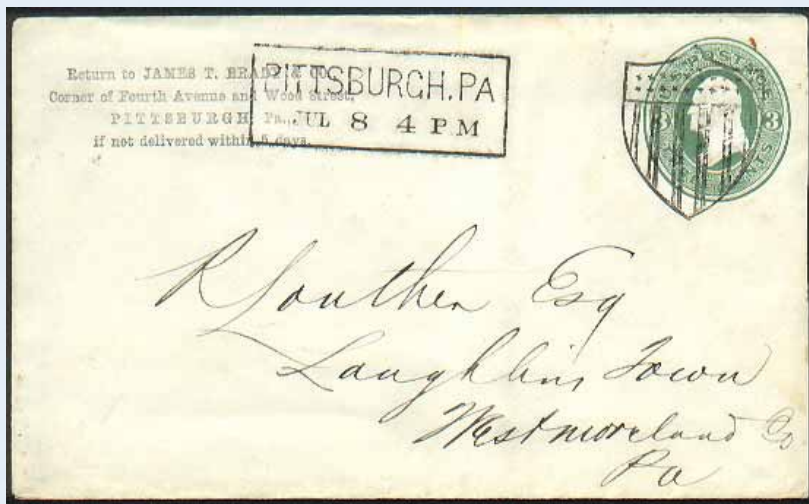 Return to JAMES T. BRADY & CO.
Corner of Fourth Avenue and Wood Street,
PITTSBURGH, Pa.,
if not delivered within 5 days.
PITTSBURGH, PA
JUL 8 4 PM
U.S. POSTAGE
3 3
CENTS
R Louther Esq
Laughlins Town
Westmoreland Co
Pa